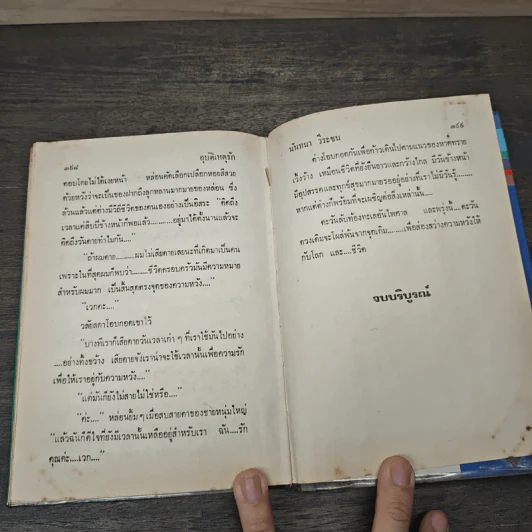 ๓๙๘ อุบัติเหตุรัก
ตอบโดยไม่ได้เงยหน้า หล่อนคัดเลือกเปลือกหอยสีสวย
ด้วยหวังว่าจะเป็นของฝากถึงลูกหลานมากมายของหล่อน ซึ่ง
ล้วนแล้วแต่ต่างมีวิถีชีวิตของตนเองอย่างเป็นอิสระ "คิดถึง
เวลาแค่สิบปีข้างหน้าก็พอแล้ว..........อยู่มาได้ตั้งนานแล้วจะ
คิดถึงวันตายทำไมกัน...."
"ถ้าผมตาย..........ผมไม่เสียดายเลยนะที่เกิดมาเป็นคน
เพราะในที่สุดผมก็พบว่า........ชีวิตครอบครัวมันมีความหมาย
สำหรับผมมาก เป็นสิ้นสุดตรงจุดของความหวัง...."
"เวกคะ...."
วลัยลดาโอบกอดเขาไว้
"บางทีเราก็เสียดายวันเวลาเก่า ๆ ที่เราใช้มันไปอย่าง
....อย่างทิ้งขว้าง เสียดายจังเราน่าจะใช้เวลานั้นเพื่อความรัก
เพื่อให้เราอยู่กับความหวัง...."
"แต่มันก็ยังไม่สายไม่ใช่หรือ...."
"ค่ะ...." หล่อนยิ้ม ๆ เมื่อสบสายตาของชายหนุ่มใหญ่
"แล้วฉันก็ดีใจที่ยังมีเวลานั้นเหลืออยู่สำหรับเรา ฉัน....รัก
คุณค่ะ....เวก...."
นันทนา วีระชน ๓๙๙
ต่างโอบกอดกันเพื่อก้าวเดินไปตามแนวของหาดทราย
เวิ้งว้าง เหมือนชีวิตที่ยังยืนยาวและกว้างไกล มีวันข้างหน้า
มีอุปสรรคและทุกข์สุขมากมายรออยู่อย่างที่เราไม่มีวันรู้........
หากแต่ต่างก็พร้อมที่จะเผชิญต่อสิ่งเหล่านั้น....
ตะวันลับท้องทะเลอันไพศาล และพรุ่งนี้....ตะวัน
ดวงเดิมจะโผล่พ้นจากจุดเดิม........เพื่อส่องสว่างความหวังให้
กับโลก และ....ชีวิต
จบบริบูรณ์